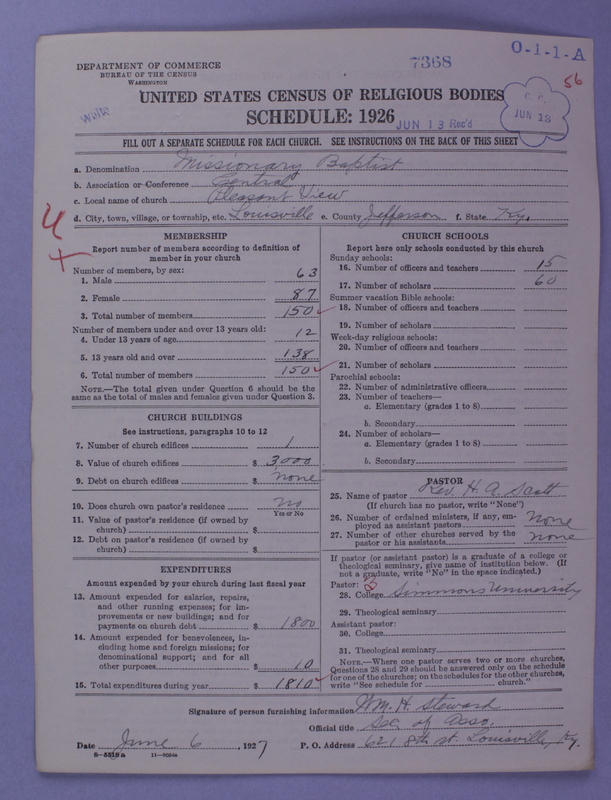 DEPARTMENT OF COMMERCE
BUREAU OF THE CENSUS
WASHINGTON
7368
O-1-1-A
56
White
UNITED STATES CENSUS OF RELIGIOUS BODIES
SCHEDULE: 1926
JUN 13 Rec'd
JUN 13
FILL OUT A SEPARATE SCHEDULE FOR EACH CHURCH. SEE INSTRUCTIONS ON THE BACK OF THIS SHEET
a. Denomination Missionary Baptist
b. Association or Conference Central
c. Local name of church Pleasant View
d. City, town, village, or township, etc. Louisville e. County Jefferson f. State Ky.
MEMBERSHIP
Report number of members according to definition of
member in your church
Number of members, by sex:
1. Male 63
2. Female 87
3. Total number of members 150
Number of members under and over 13 years old:
4. Under 13 years of age 12
5. 13 years old and over 138
6. Total number of members 150
NOTE.—The total given under Question 6 should be the
same as the total of males and females given under Question 3.
CHURCH BUILDINGS
See instructions, paragraphs 10 to 12
7. Number of church edifices 1
8. Value of church edifices $ 3000
9. Debt on church edifices $ none
10. Does church own pastor's residence no
Yes or No
11. Value of pastor's residence (if owned by
church) $
12. Debt on pastor's residence (if owned by
church) $
EXPENDITURES
Amount expended by your church during last fiscal year
13. Amount expended for salaries, repairs,
and other running expenses; for im-
provements or new buildings; and for
payments on church debt $ 1800
14. Amount expended for benevolences, in-
cluding home and foreign missions; for
denominational support; and for all
other purposes $ 10
15. Total expenditures during year $ 1810
CHURCH SCHOOLS
Report here only schools conducted by this church
Sunday schools:
16. Number of officers and teachers 15
17. Number of scholars 60
Summer vacation Bible schools:
18. Number of officers and teachers
19. Number of scholars
Week-day religious schools:
20. Number of officers and teachers
21. Number of scholars
Parochial schools:
22. Number of administrative officers
23. Number of teachers—
a. Elementary (grades 1 to 8)
b. Secondary
24. Number of scholars—
a. Elementary (grades 1 to 8)
b. Secondary
PASTOR
25. Name of pastor Rev. H. A. Scott
(If church has no pastor, write "None")
26. Number of ordained ministers, if any, em-
ployed as assistant pastors None
27. Number of other churches served by the
pastor or his assistants none
If pastor (or assistant pastor) is a graduate of a college or
theological seminary, give name of institution below. (If
not a graduate, write "No" in the space indicated.)
Pastor:
28. College Simmons University
29. Theological seminary
Assistant pastor:
30. College
31. Theological seminary
NOTE.—Where one pastor serves two or more churches,
Questions 28 and 29 should be answered only on the schedule
for one of the churches; on the schedules for the other churches,
write "See schedule for church."
Signature of person furnishing information Wm. H. Steward
Official title Sec. of Asso.
Date June 6, 1927 P. O. Address 621 8th st. Louisville, Ky.